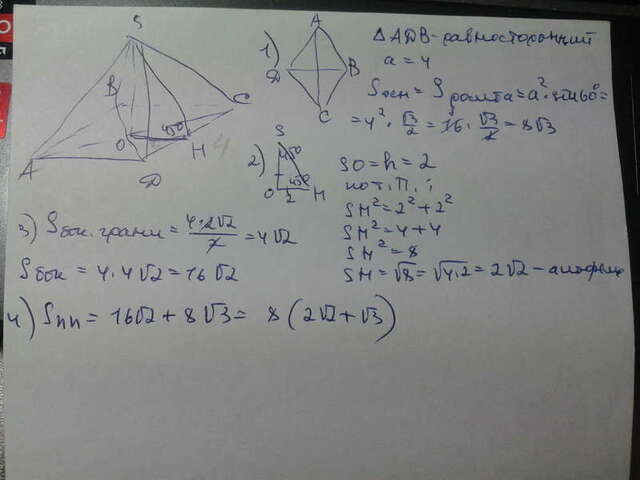 S
B
C
O
45°
H
A
D
4
1) A
D
B
C
△ADB-равносторонний
a = 4
Sосн = Sромба = a² · sin60° =
= 4² · √3/2 = 16 · √3/2 = 8√3
2) S
45°
45°
O 2 H
SO = h = 2
по т. П. :
SH² = 2² + 2²
SH² = 4 + 4
SH² = 8
SH = √8 = √4·2 = 2√2 - апофема
3) Sбок. грани = 4·2√2/2 = 4√2
Sбок = 4·4√2 = 16√2
4) Sпп = 16√2 + 8√3 = 8(2√2 + √3)